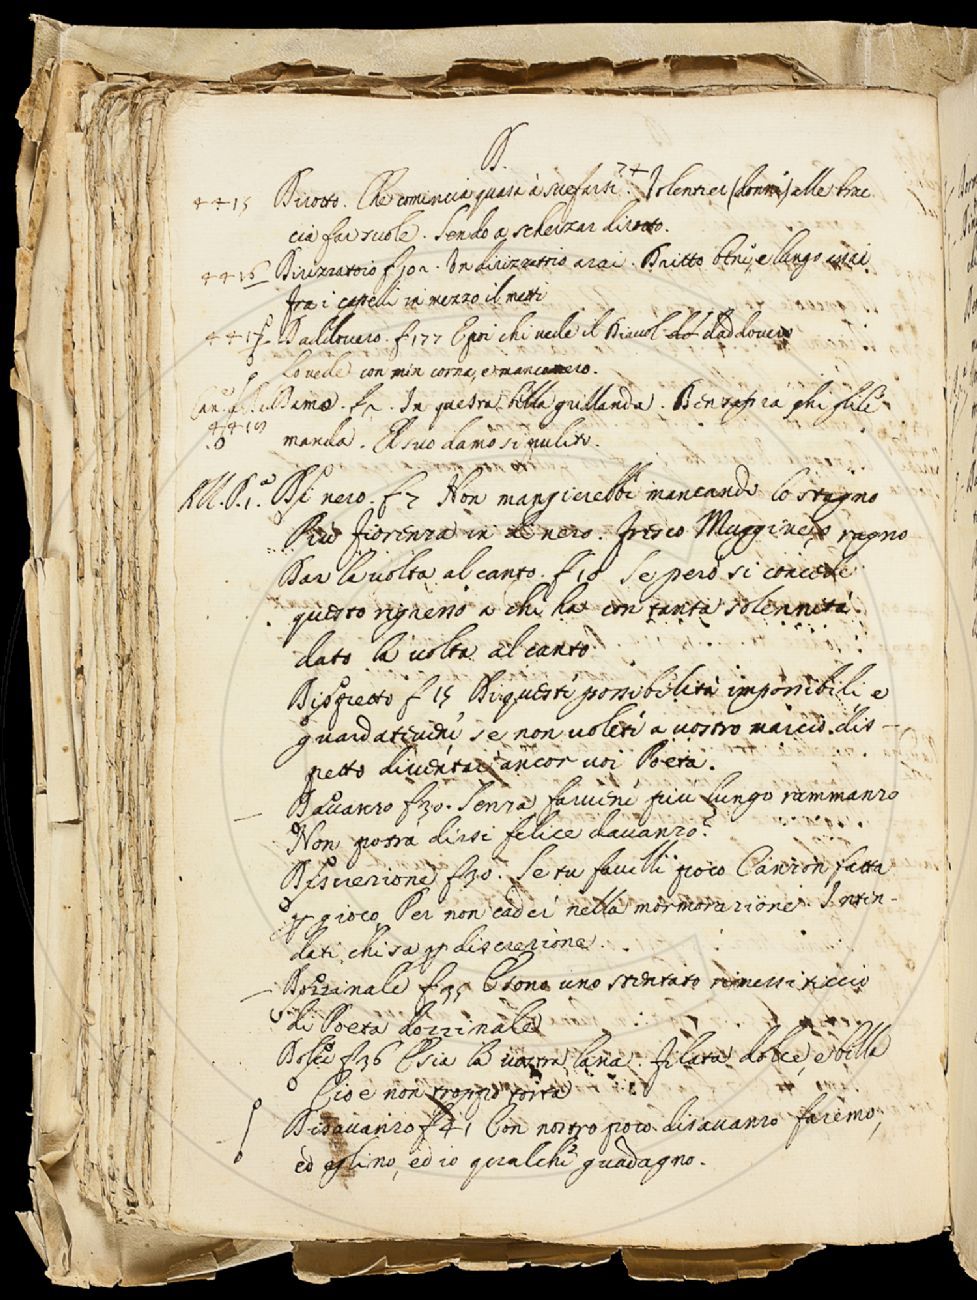 D.
4415 Dirotto. Che comincia quasi à suefarsi 24. Volentier (donna) alle brac
cia far suole. Sendo a scherzar dirotto.
4416 Dirizzatoio f 102. In dirizzatoio arai. Dritto bene, e lungo assai
fra i capelli in mezzo il metti
441 Daddovero. f 177 E poi chi vede il Diavol daddovero
Lo vede con min corna, e manco nero.
Damo. f 2. In questa bella grillanda.
4419 manda. El suo damo si pulito.
All. P. 1.ª Dì nero. f 7 Non mangierebbe mancando lo stagno
Più Fiorenza in dì nero. fresco Muggine, o ragno
Dar la volta al canto. f 10 Se però si concede
questo rigresso a chi ha con tanta solennità
dato la volta al canto
Dispetto f 15 Di queste possibilità impossibili e
guardatevene se non volete a vostro marcio dis-
petto diventar ancor voi Poeta.
Davanzo f 30. Senza farvene più lungo rammanzo
Non potrà dirsi felice davanzo?
Discrezione f 30. Se tu favelli poco Canzon fatta
p gioco Per non cader nella mormorazione Inten-
dati chi sa p discrezione.
Dozzinale f 35 E sono uno stentato rimessiticcio
di Poeta dozzinale
Dolce f 36 E sia la vostra lana. filata dolce, e bella
Cioè non troppo torta
Disavanzo f 41 Con nostro poco disavanzo faremo,
ed eglino, ed io qualche guadagno.